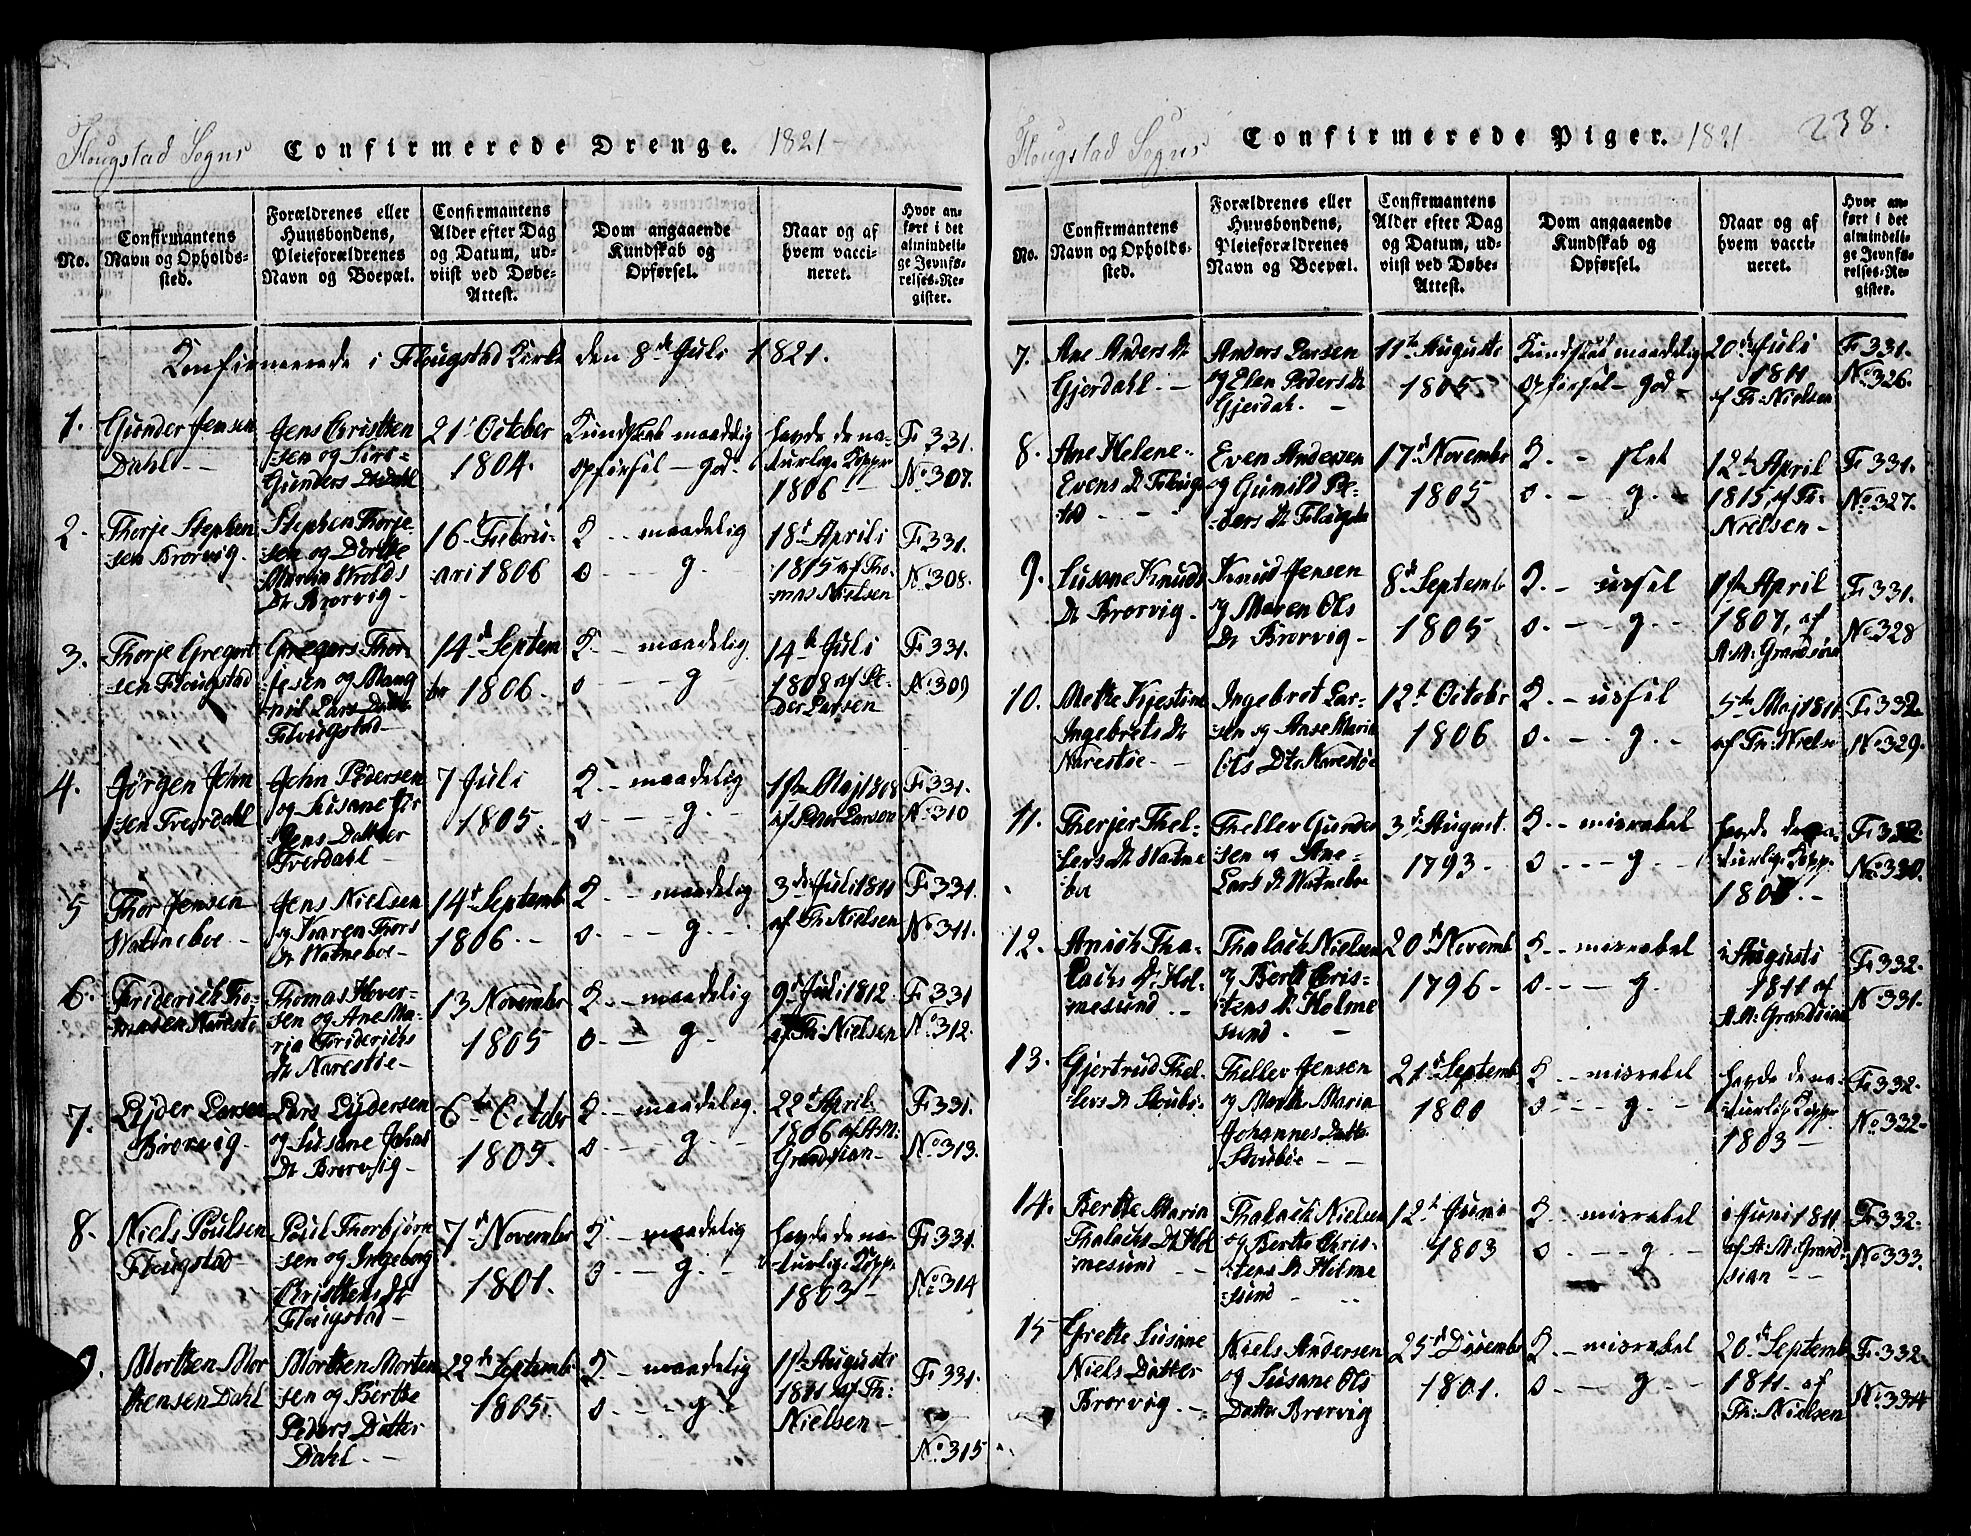 Flougstad Sogns Confirmerede Drenge. 1821
No.
Confirmantens Navn og Opholds-sted.
Forældrenes eller Huusbondens, Pleieforældrenes Navn og Boepæl.
Confirmantens Alder efter Dag og Datum, ud-viist ved Døbe-Attest.
Dom angaaende Kundskab og Opførsel.
Naar og af hvem vacci-neret.
Hvor an-ført i det almindeli-ge Jevnfø-relses-Re-gister.
Konfirmerede i Flougstad Kirke den 8de Juli 1821.
1. Gunder Jensen
Dahl --
Jens Christen
sen og Siri
Gunders Dr Dahl
21 October
1804.
Kundskab maadelig
opførsel - god.
havde de na-
turlige Kopper
1806 -
F: 331.
No 307.
2. Thorje Stephen
sen Brorvig.
Stephen Thorje
sen og Dorthe
Maria Wrolds
Dr Brorvig -
16 Februi-
ari 1806
K -- maadelig
o --- g. -
18 Aprili
1815 af Tho-
mas Nielsen
F: 331.
No 308.
3. Thorje Gregert
sen Flougstad
Gregers Thor-
jesen og Mang
nil Lars Datter
Flougstad -
14d Septem
ber 1806.
K -- maadelig
o --- g -
14de Juli
1808 af Pe-
der Larsen
F: 331.
No 309
4. Jørgen John
sen Tverdahl
John Pedersen
og Susane Jør
gens Datter
Tverdahl -
7 Juli
1805.
K -- maadelig
o --- g. -
1ste Maj 1808
af Peder Larsen
F: 331.
No 310
5 Thor Jensen
Watneboe -
Jens Nielsen
og Karen Thors
Dr Watneboe -
14d Septemb
1806. --
K -- maadelig
o. -- g. --
3de Juli 1811
af Th: Nielsen
F: 331.
No 311.
6. Friderich Tho-
masen Narestø
Thomas Hover-
sen og Ane Ma-
ria Friderichs
Dr Narestøe -
13 November
1805
K -- maadelig
o. -- g. -
9d Juli 1812
af Th: Nielsen
F: 331
No 312.
7. Lyder Larsen
Brorvig -
Lars Lydersen
og Susane Johns
Dr Brorvig -
6te October
1805.
K -- maadelig
o --- g. --
22d April
1806 af A: M:
Grandsian -
F: 331.
No 313.
8. Niels Poulsen
Flougstad -
Poul Thorbjørn
sen og Ingeborg
Christens Dr
Flougstad -
7d November
1801.
K -- maadelig
o --- g. --
havde de na-
turlige Kopper
1803 -
F: 331.
No 314
9. Morthen Mor
thensen Dahl
Morthen Morten
sen og Berthe
Peders Datter
Dahl. --
22de September
1805.
K -- maadelig
o --- g. --
1ste Augusti
1811 af Th:
Nielsen -
F: 331.
No 315
Flougstad Sogns Confirmerede Piger. 1821 238.
No.
Confirmantens Navn og Opholds-sted.
Forældrenes eller Huusbondens, Pleieforældrenes Navn og Boepæl.
Confirmantens Alder efter Dag og Datum, ud-viist ved Døbe-Attest.
Dom angaaende Kundskab og Opførsel.
Naar og af hvem vacci-neret.
Hvor an-ført i det almindeli-ge Jevnfø-relses-Re-gister.
7. Ane Anders Dr
Gjerdahl. -
Anders Larsen
og Elen Peders Dr
Gjerdal. -
11te Augusti
1805
Kundskab maadelig
opførsel - god -
20de Juli
1811
af Th: Nielsen
F: 331.
No 326.
8. Ane Helene
Evens Dr Floug
sted - - -
Even Andersen
og Gunild Pe-
ders Dr Flougsta
17d November
1805
K. - slet
o. - - g. -
12te April
1815 af Th:
Nielsen -
F: 331.
No 327.
9. Susane Knuds
Dr Brorvig. -
Knud Jensen
og Maren Ols
Dr Brorvig -
8d Septemb
1805
K. - usel
o. -- g. --
1ste April
1807, af
A: M: Grandsian
F: 331.
No 328
10. Mette Kjestine
Ingebrets Dr
Narestøe. -
Ingebret Lar-
sen og Anse Marie
Ols Dtr Narestøe
12te Octobr
1806
K - usel
o. -- g. --
5te Maj 1811
af Th: Niels
F: 332
No 329.
11. Therjer Thel-
lefs Dr Watne
bu
Thellev Gunder
sen og Ane
Lars Dr Watneboe
3d August.
1793 -
K -- misrabel
o. --- g. --
havde de na-
turlige Kopper
F: 332.
No 330.
12. Anich Tha-
lachs Dr Hol-
mesund --
Thalach Nielsen
og Berthe Chris-
tens Dr Holme
sund - -
20d Novemb
1796 -
K -- misrabel
o. --- g.
i Augusti
1811 af
A: M: Grandsian
F: 332.
No 331.
13. Gjertrud Thel-
lefs Dr Stoubø
Thellev Jensen
og Marthe Maria
Johannes Datter
Stoubøe - -
21d Septemb
1800
K -- misrabel
o --- g. --
havde de na-
turlige Kopper
1803 -
F: 332.
No 332.
14. Berthe Maria
Thalachs Dr Hol
mesund - -
Thalach Nielsen
og Berthe Chris-
tens Dr Holme
sund - --
12te Juni
1803
K -- misrabel
o --- g --
i Juni 1811
af A: M: Grand
sian --
F: 332.
No 333.
15 Grethe Susane
Niels Datter
Brorvig. -
Niels Andersen
og Susane Ols
Datter Brorvig
25d Decembr
1801.
K -- misrabel
o --- g --
20d Septemb
1811 af
Th: Nielsen
F: 332.
No 334